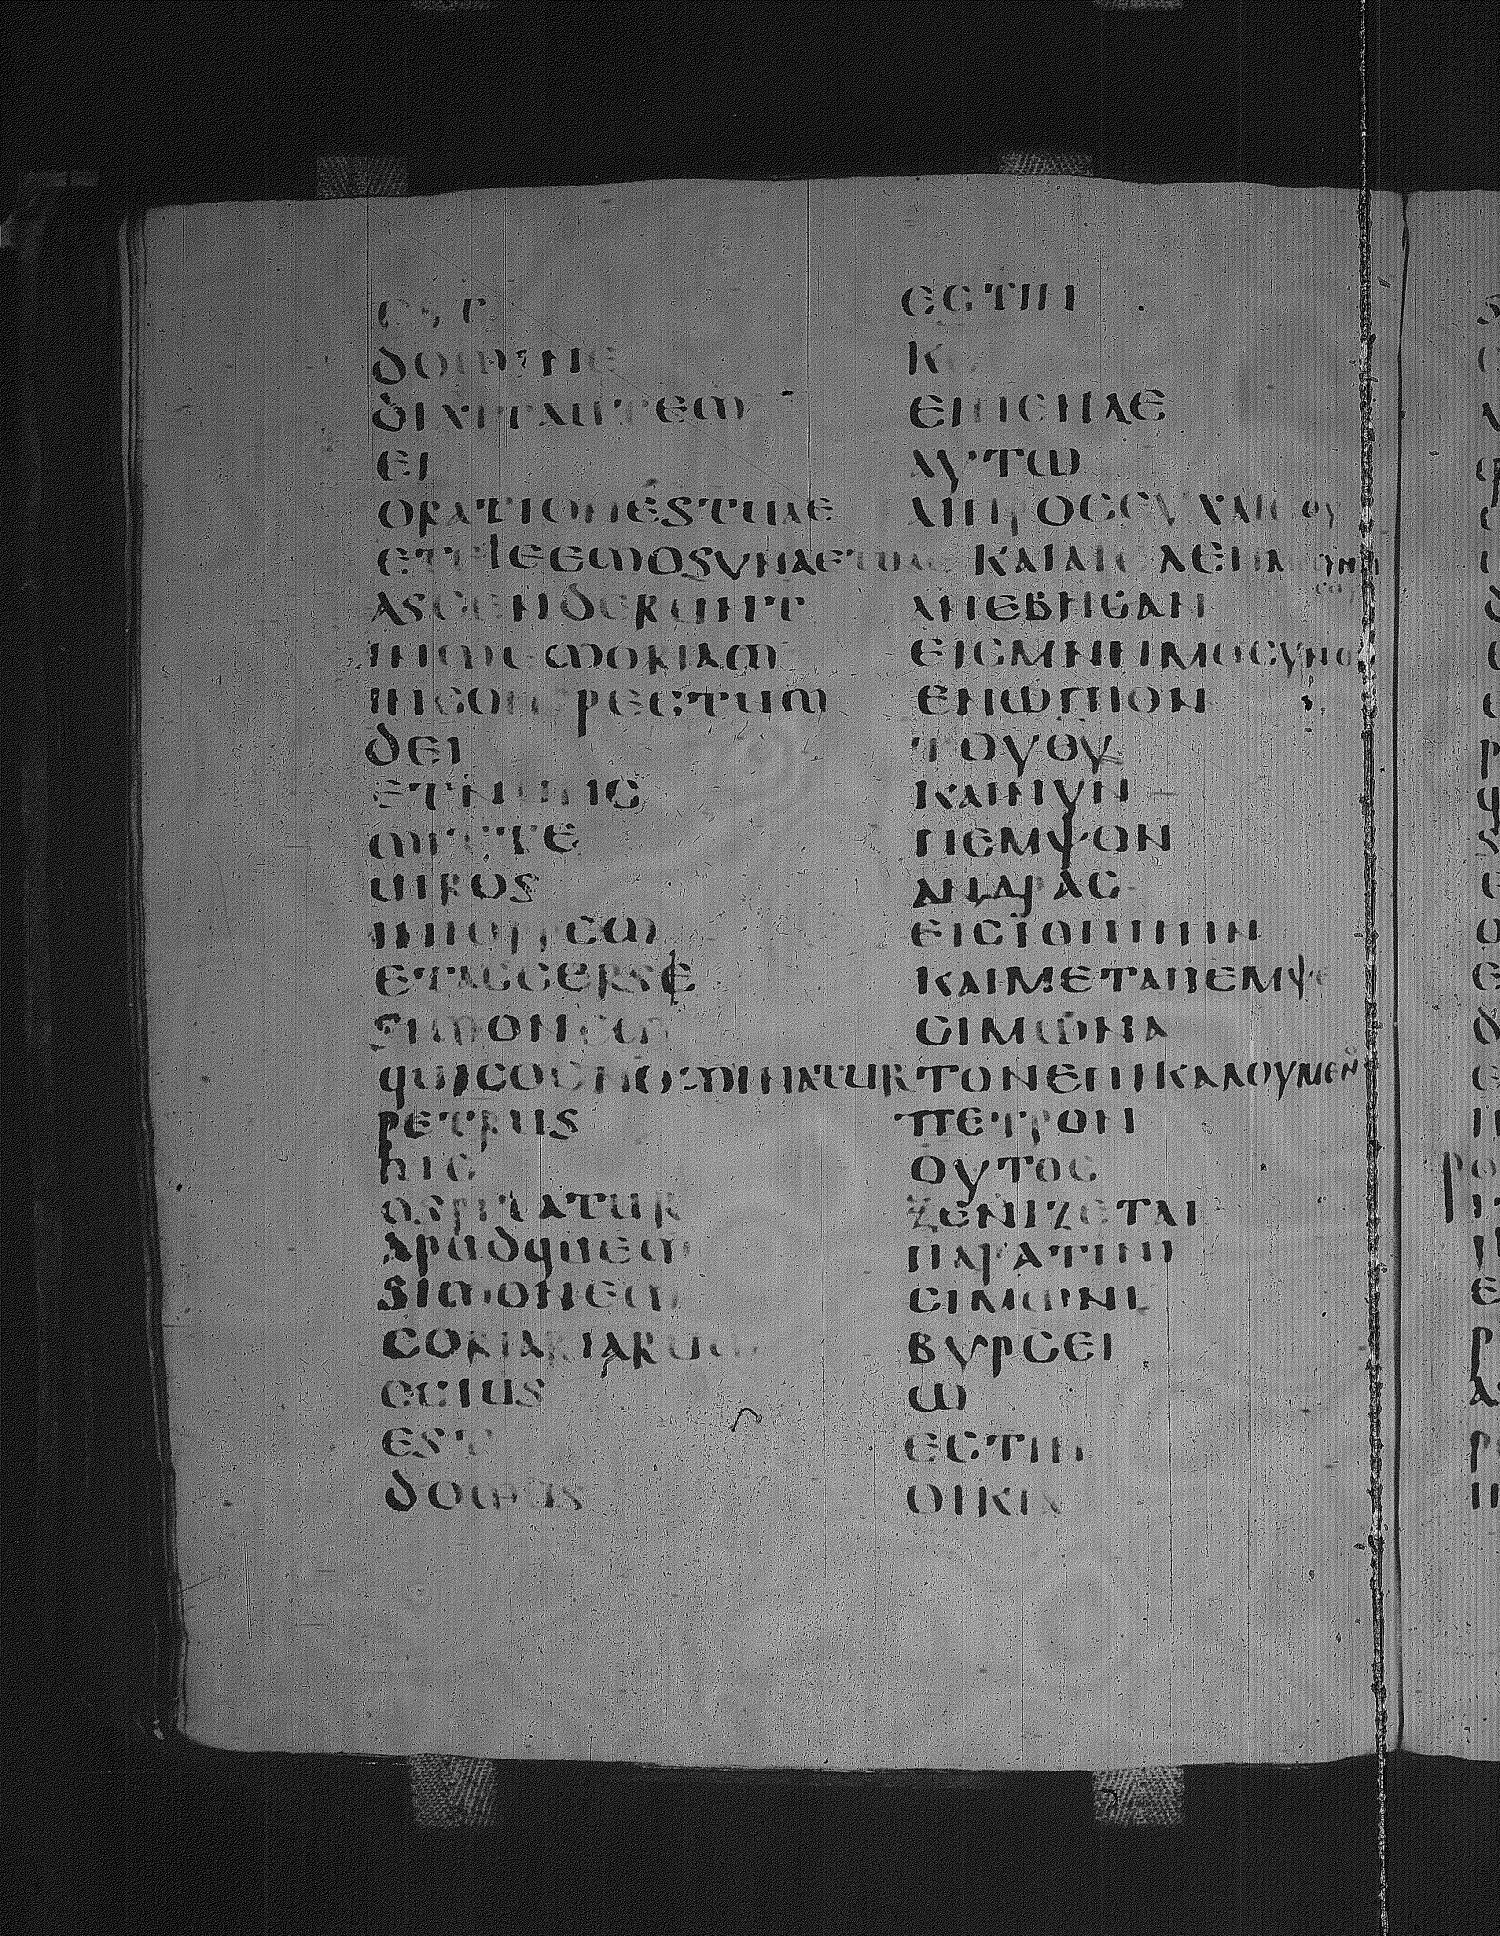 est
domine
dixitautem
ei
orationestuae
eteleemosynaetuae
ascenderunt
inmemoriam
inconspectum
dei
etnunc
mitte
uiros
inioppem
etaccerse
simonem
quicognominatur
petrus
hic
ospitatur
apudquem
simonem
ecius
est
domus
ΕϹΤΙΝ
ΕΙΠΕΝΔΕ
ΑΥΤΩ
ΑΙΠΡΟϹΕΥΧΑΙϹΟΥ
ΚΑΙΑΙΕΛΕΗΜΟϹΥΝΑΙ
ϹΟΥ
ΑΝΕΒΗϹΑΝ
ΕΙϹΜΝΗΜΟϹΥΝΟΝ
ΕΝΩΠΙΟΝ
ΤΟΥΘΥ
ΚΑΙΝΥΝ
ΠΕΜΨΟΝ
ΑΝΔΡΑϹ
ΕΙϹΙΟΠΠΗΝ
ΚΑΙΜΕΤΑΠΕΜΨΕ
ϹΙΜΩΝΑ
ΤΟΝΕΠΙΚΑΛΟΥΜΕΝΟ̄
ΠΕΤΡΟΝ
ΟΥΤΟϹ
ΞΕΝΙΖΕΤΑΙ
ΠΑΡΑΤΙΝΙ
ϹΙΜΩΝΙ
ΒΥΡϹΕΙ
Ω
ΕϹΤΙΝ
ΟΙΚΙΑ